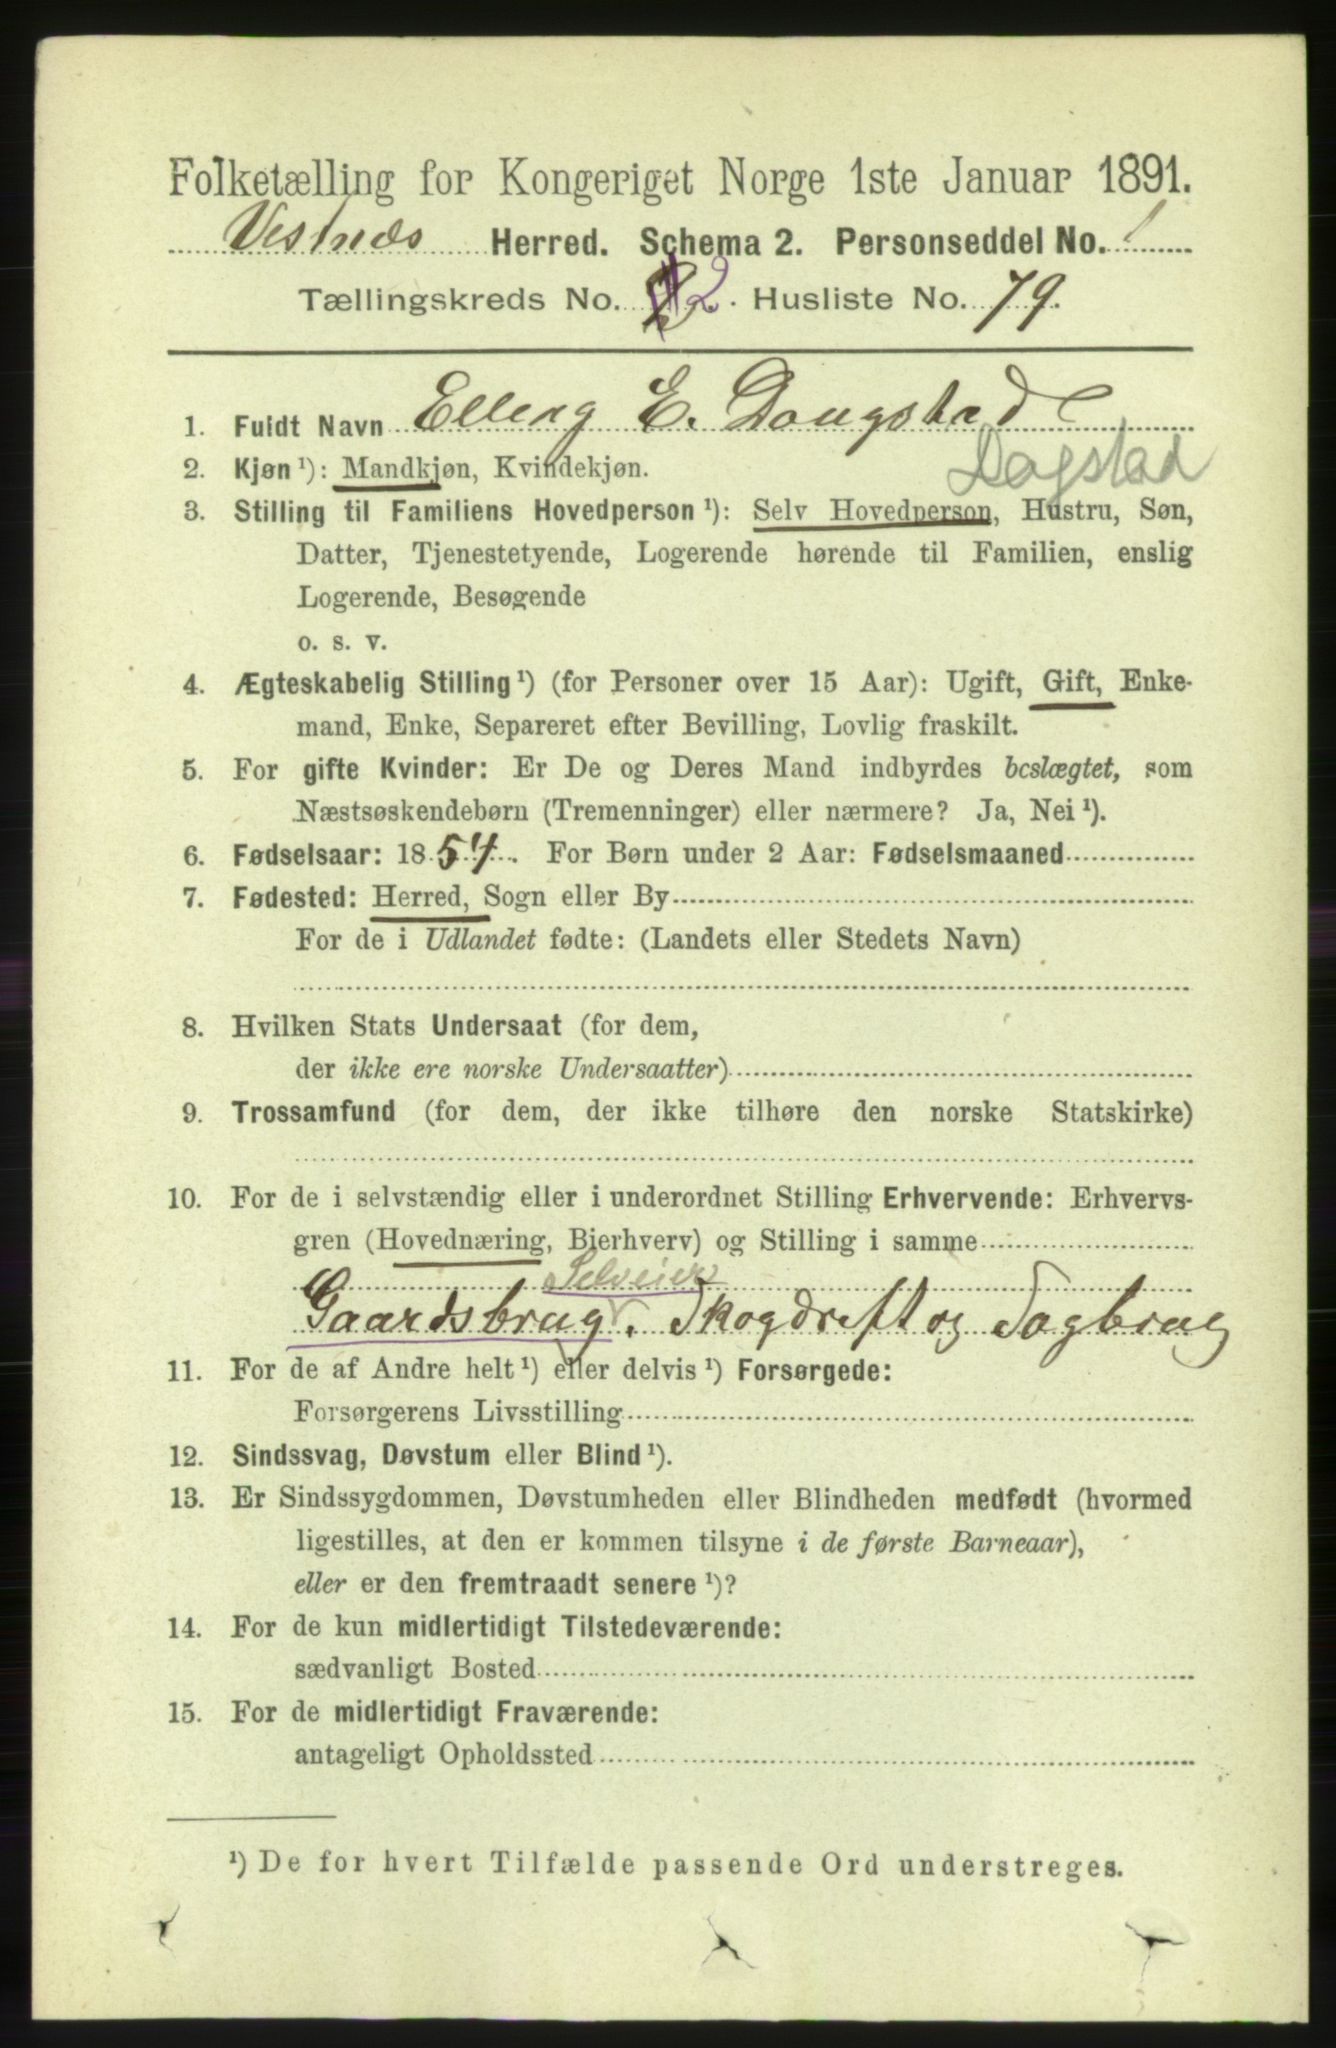 Folketælling for Kongeriget Norge 1ste Januar 1891.
Vestnæs Herred. Schema 2. Personseddel No. 1
Tællingskreds No. 2. Husliste No. 79.
1. Fuldt Navn Elling E. Dougstad
Dogstad
2. Kjøn ¹): Mandkjøn, Kvindekjøn.
3. Stilling til Familiens Hovedperson ¹): Selv Hovedperson, Hustru, Søn,
Datter, Tjenestetyende, Logerende hørende til Familien, enslig
Logerende, Besøgende
o. s. v.
4. Ægteskabelig Stilling ¹) (for Personer over 15 Aar): Ugift, Gift, Enke-
mand, Enke, Separeret efter Bevilling, Lovlig fraskilt.
5. For gifte Kvinder: Er De og Deres Mand indbyrdes beslægtet, som
Næstsøskendebørn (Tremenninger) eller nærmere? Ja, Nei ¹).
6. Fødselsaar: 1854. For Børn under 2 Aar: Fødselsmaaned
7. Fødested: Herred, Sogn eller By
For de i Udlandet fødte: (Landets eller Stedets Navn)
8. Hvilken Stats Undersaat (for dem,
der ikke ere norske Undersaatter)
9. Trossamfund (for dem, der ikke tilhøre den norske Statskirke)
10. For de i selvstændig eller i underordnet Stilling Erhvervende: Erhvervs-
gren (Hovednæring, Bierhverv) og Stilling i samme
Selveier
Gaardsbrug. Skogdrift og Sagbrug
11. For de af Andre helt ¹) eller delvis ¹) Forsørgede:
Forsørgerens Livsstilling
12. Sindssvag, Døvstum eller Blind ¹).
13. Er Sindssygdommen, Døvstumheden eller Blindheden medfødt (hvormed
ligestilles, at den er kommen tilsyne i de første Barneaar),
eller er den fremtraadt senere ¹)?
14. For de kun midlertidigt Tilstedeværende:
sædvanligt Bosted
15. For de midlertidigt Fraværende:
antageligt Opholdssted
¹) De for hvert Tilfælde passende Ord understreges.